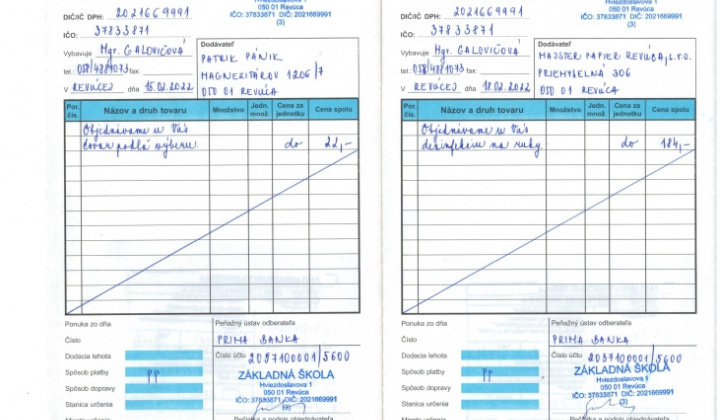 DIČ/IČ DPH: 2021669991
IČO: 37833871
Hviezdoslavova 1
050 01 Revúca
IČO: 37833871 DIČ: 2021669991
(3)
Vybavuje Mgr. GALOVIČOVÁ
tel. 058/4881073 fax
V REVÚCEJ dňa 15.02.2022
Dodávateľ
PATRIK PÁNIK
MAGNEZITÁROV 1206/7
050 01 REVÚCA
Por. čís. Názov a druh tovaru Množstvo Jedn. množ. Cena za jednotku Cena spolu
Objednávame u Vás
tovar podľa výberu do 22,-
Ponuka zo dňa
Číslo
Dodacia lehota
Spôsob platby PP
Spôsob dopravy
Stanica určenia
Peňažný ústav odberateľa
PRIMA BANKA
Číslo účtu 2057100001/5600
ZÁKLADNÁ ŠKOLA
Hviezdoslavova 1
050 01 Revúca
IČO: 37833871 DIČ: 2021669991
(3)
DIČ/IČ DPH: 2021669991
IČO: 37833871
Hviezdoslavova 1
050 01 Revúca
IČO: 37833871 DIČ: 2021669991
(3)
Vybavuje Mgr. GALOVIČOVÁ
tel. 058/4881073 fax
V REVÚCEJ dňa 18.02.2022
Dodávateľ
MAJSTER PAPIER REVÚCA, s.r.o.
PRIEMYSELNÁ 306
050 01 REVÚCA
Por. čís. Názov a druh tovaru Množstvo Jedn. množ. Cena za jednotku Cena spolu
Objednávame u Vás
dezinfekciu na ruky do 184,-
Ponuka zo dňa
Číslo
Dodacia lehota
Spôsob platby PP
Spôsob dopravy
Stanica určenia
Peňažný ústav odberateľa
PRIMA BANKA
Číslo účtu 2057100001/5600
ZÁKLADNÁ ŠKOLA
Hviezdoslavova 1
050 01 Revúca
IČO: 37833871 DIČ: 2021669991
(3)